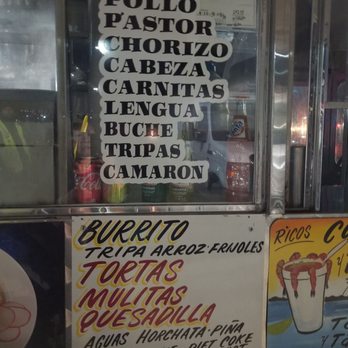 POLLO
PASTOR
CHORIZO
CABEZA
CARNITAS
LENGUA
BUCHE
TRIPAS
CAMARON
BURRITO
TRIPA ARROZ·FRIJOLES
TORTAS
MULITAS
QUESADILLA
AGUAS HORCHATA·PIÑA
DIET COKE
RICOS
Y